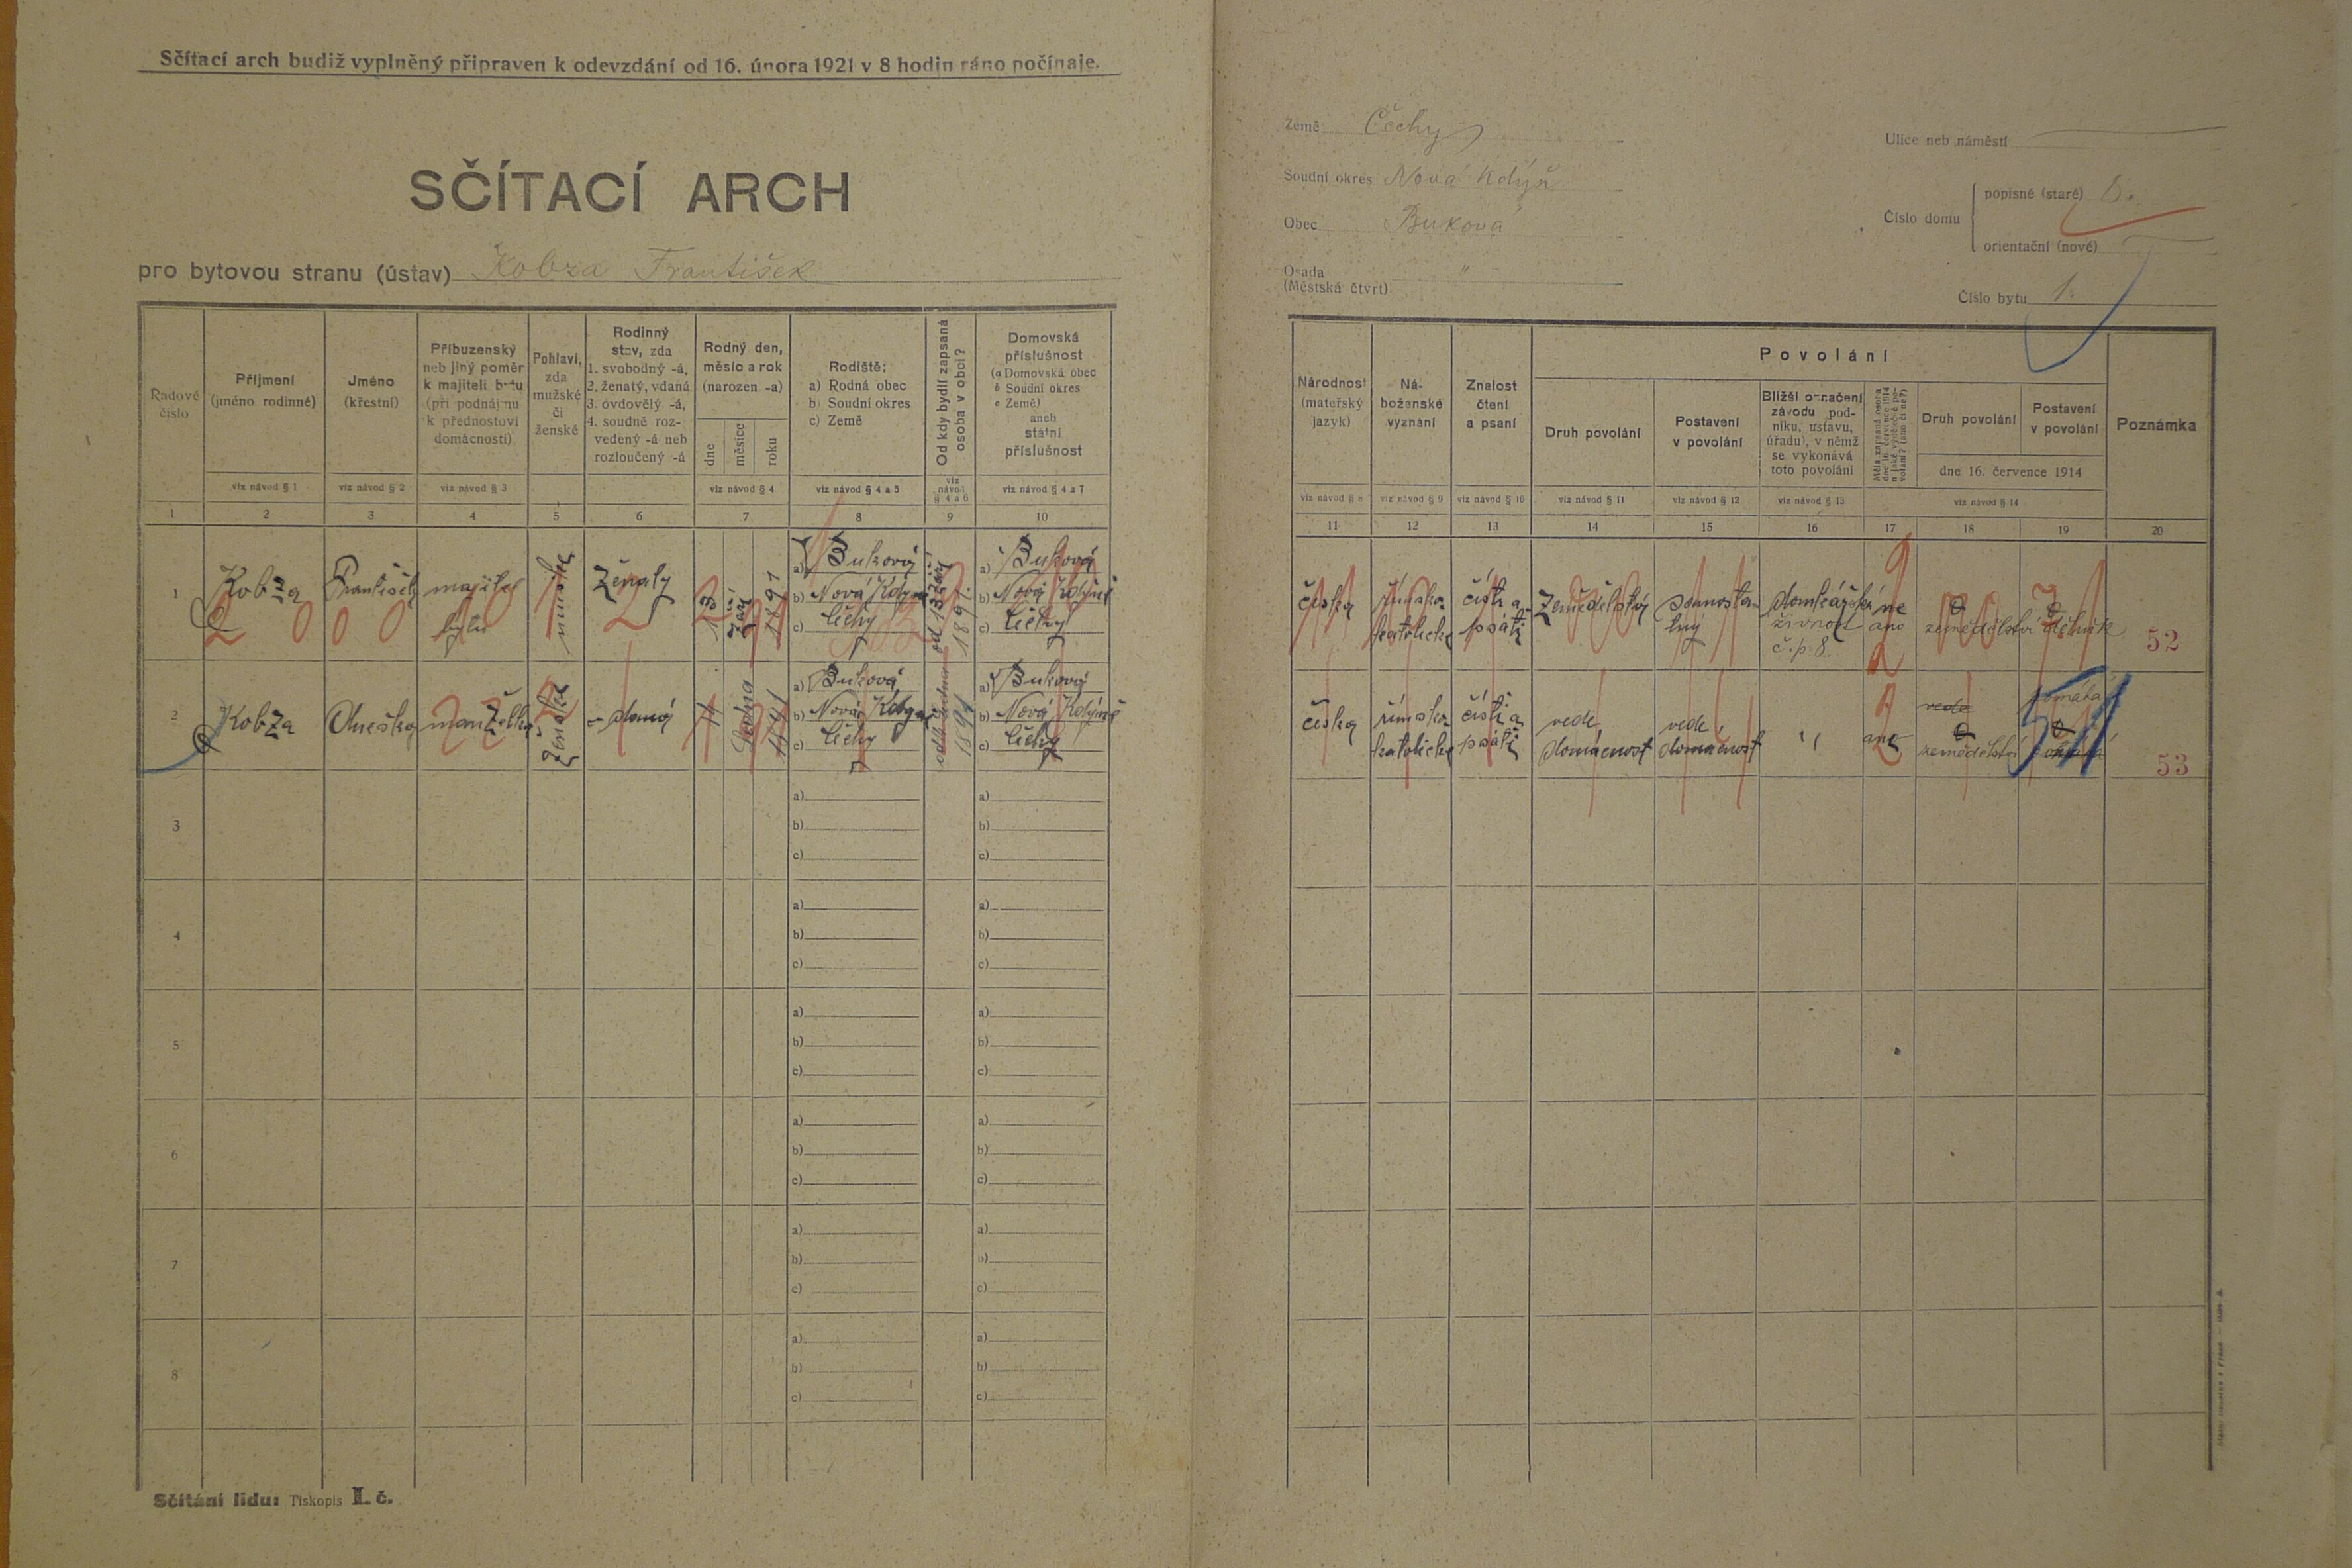 Sčítací arch budiž vyplněný připraven k odevzdání od 16. února 1921 v 8 hodin ráno počínaje.
SČÍTACÍ ARCH
pro bytovou stranu (ústav) Kobza František
Řadové číslo
Příjmení (jméno rodinné)
Jméno (křestní)
Příbuzenský neb jiný poměr k majiteli bytu (při podnájmu k přednostovi domácnosti)
Pohlaví, zda mužské či ženské
Rodinný stav, zda
1. svobodný -á,
2. ženatý, vdaná
3. ovdovělý -á,
4. soudně rozvedený -á neb rozloučený -á
Rodný den, měsíc a rok (narozen -a)
dne
měsíce
roku
Rodiště:
a) Rodná obec
b) Soudní okres
c) Země
Od kdy bydlí zapsaná osoba v obci?
Domovská příslušnost
(a Domovská obec
b Soudní okres
c Země)
aneb
státní
příslušnost
viz návod § 1 viz návod § 2 viz návod § 3 viz návod § 4 viz návod § 4 a 5 viz návod § 4 a 6 viz návod § 4 a 7
1 2 3 4 5 6 7 8 9 10
1 Kobza František majitel bytu mužské ženatý 13 září 1891
a) Buková
b) Nová Kdyně
c) Čechy
od 13 září 1891.
a) Buková
b) Nová Kdyně
c) Čechy
2 Kobza Anežka manželka ženské
a) Buková
b) Nová Kdyně
c) Čechy
a) Buková
b) Nová Kdyně
c) Čechy
3
a)
b)
c)
a)
b)
c)
4
a)
b)
c)
a)
b)
c)
5
a)
b)
c)
a)
b)
c)
6
a)
b)
c)
a)
b)
c)
7
a)
b)
c)
a)
b)
c)
8
a)
b)
c)
a)
b)
c)
Sčítání lidu: Tiskopis I. č.
Země Čechy
Soudní okres Nová Kdyň
Obec Buková
Osada (Městská čtvrt) "
Ulice neb náměstí
Číslo domu
popisné (staré) 8.
orientační (nové)
Číslo bytu 1.
Národnost (mateřský jazyk)
Náboženské vyznání
Znalost čtení a psaní
Povolání
Druh povolání
Postavení v povolání
Bližší označení závodu podniku, ústavu, úřadu), v němž se vykonává toto povolání
Druh povolání
Postavení v povolání
dne 16. července 1914
Poznámka
viz návod § 8 viz návod § 9 viz návod § 10 viz návod § 11 viz návod § 12 viz návod § 13 viz návod § 14
11 12 13 14 15 16 17 18 19 20
česká římsko-katolické čísti a psáti Zemědělství samostatný domkářská živnost č.p. 8. ne ano zemědělství dělník 52
česká římsko-katolické čísti a psáti vede domácnost vede domácnost " ano vede zemědělství pomáhá 51 53